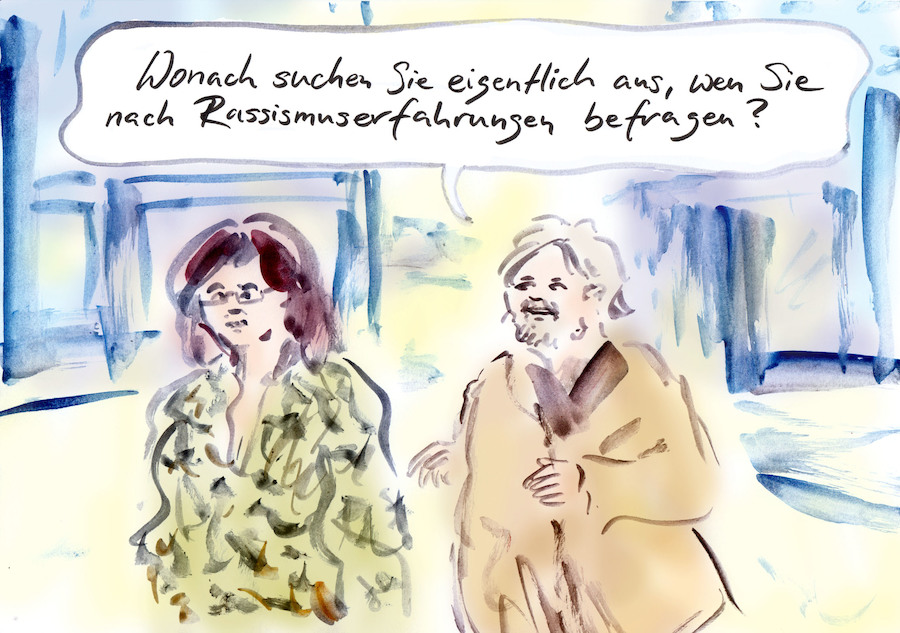 Wonach suchen Sie eigentlich aus, wen Sie
nach Rassismuserfahrungen befragen?